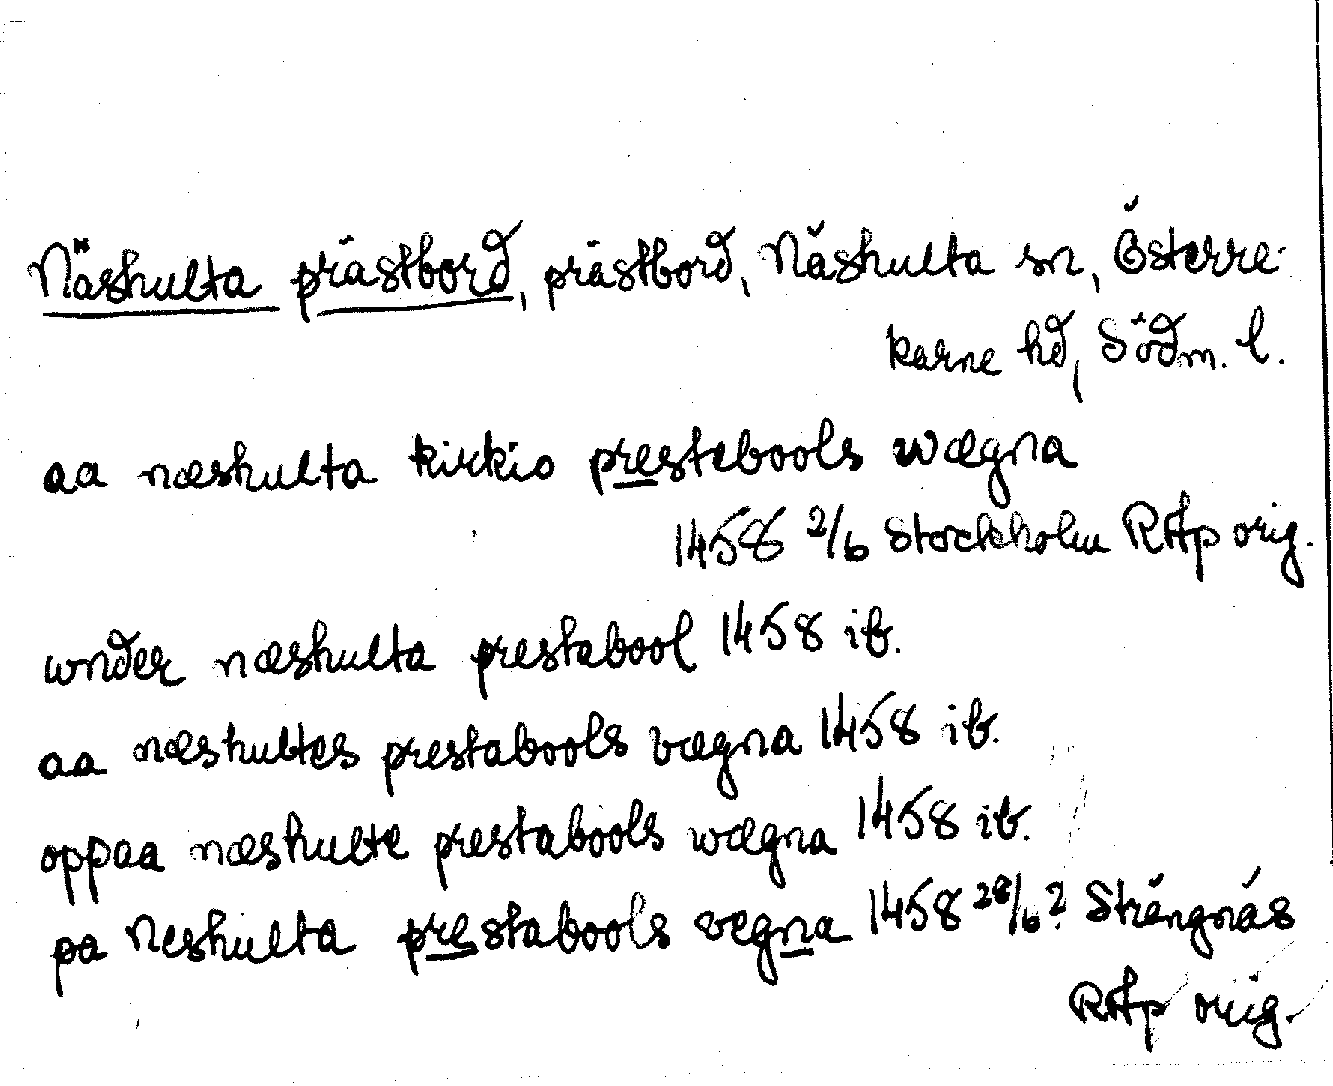 Näshulta prästbord, prästbord, Näshulta sn, Österre-
karne hd, Södm. l.
aa næshulta kirkio prestebools wægna
1458 2/6 Stockholm RAp orig.
wnder næshulta prestabool 1458 ib.
aa næshultes prestabools vægna 1458 ib.
oppaa næshulte prestabools wægna 1458 ib.
pa Neshulta prestabools vegna 1458 28/6? Strängnäs
RAp orig.